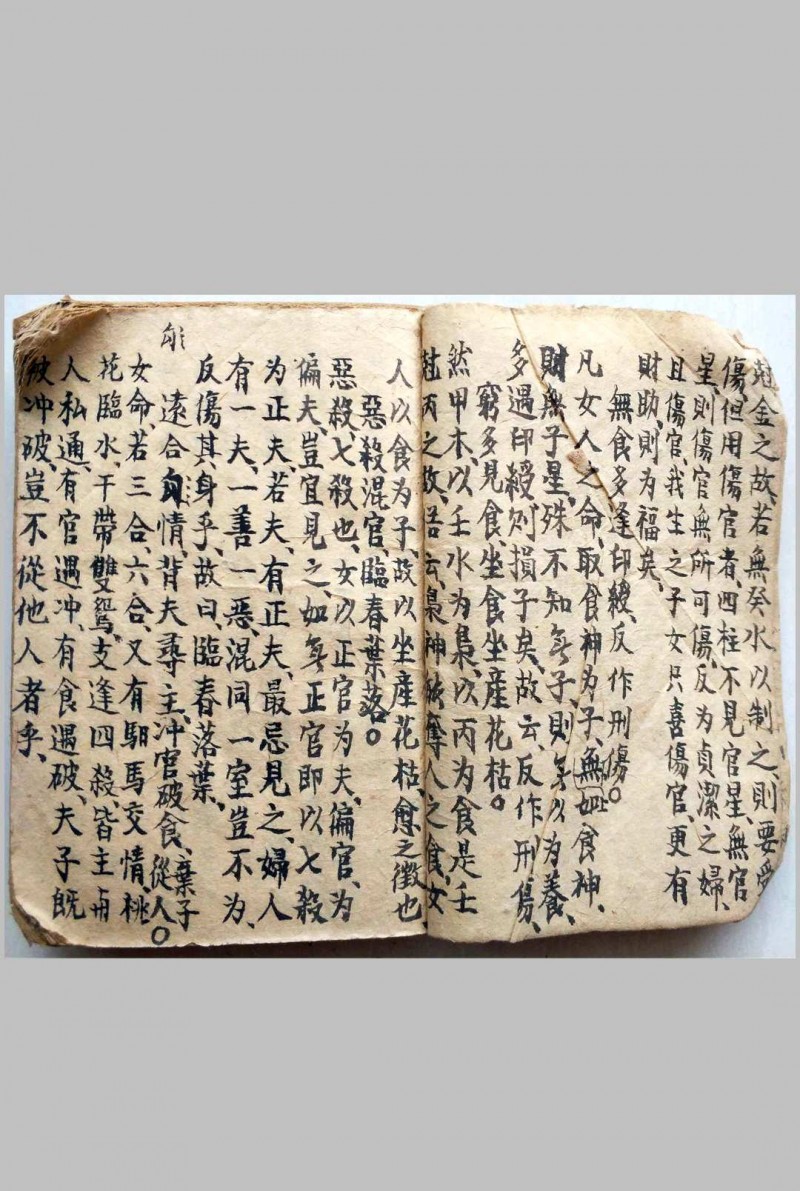 尅金之故、若無癸水以制之、則要受
傷、但用傷官者、四柱不見官星、無官
星、則傷官無所可傷、反为貞潔之婦、
且傷官我生之子女只喜傷官、更有
財助、則为福矣、
無食多逢印綬、反作刑傷。
凡女人之命、取食神为子、無如食神、
財無子星、殊不知無子、則無以为養、
多遇印綬則損子矣、故云、反作刑傷、
窮多見食坐食坐産花枯。
然甲木、以壬水为梟、以丙为食是壬
尅丙之故、偣云、梟神能奪人之食、女
人以食为子、故以坐産花枯、愈之徵也
惡殺混官、臨春葉落。
惡殺、七殺也、女以正官为夫、偏官、为
偏夫、豈宜見之、如無正官即以七殺
为正夫、若夫、有正夫、最忌見之、婦人
有一夫、一善一惡、混同一室豈不为、
反傷其身乎、故曰、臨春落葉、
遠合勾情、背夫尋主、冲官破食、棄子從人。
女命、若三合、六合、又有馹馬交情、桃
花臨水、干帶雙鴛、支逢四殺、皆主冇
人私通、有官遇冲、有食遇破、夫子既
被冲破、豈不從他人者乎、